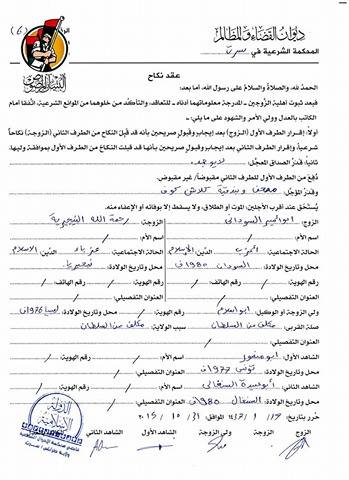 ديوان القضاء والمظالم
المحكمة الشرعية في سرت
عقد نكاح
الحمدُ لله، والصلاةُ والسلامُ على رسول الله، أما بعد:
فبعد ثبوت أهلية الزوجين - المدرجة معلوماتهما أدناه - للتعاقد، والتأكد من خلوهما من الموانع الشرعية، اتفقا أمام
الكاتب بالعدل وولي الأمر والشهود على ما يلي:
أولاً: إقرار الطرف الأول (الزوج) بعد إيجاب وقبول صريحين بأنه قد قبل النكاح من الطرف الثاني (الزوجة) نكاحاً
شرعياً، وإقرار الطرف الثاني بعد إيجاب وقبول صريحين بأنها قد قبلت النكاح من الطرف الأول بموافقة وليها.
ثانياً: قدرُ الصداق المعجَّل: لا يوجد
دُفع من الطرف للطرف الثاني مقبوضاً/ غير مقبوض.
وقدرُ المؤجَّل: مصحف وبندقية كلاش كوف
يُستحق عند أقرب الأجلين، الموت أو الطلاق، ولا يسقط إلا بوفائه أو الإعفاء منه.
الزوج: أبو المنير السوداني الزوجة: رحمة الله النيجيرية
اسم الأم: / اسم الأم: /
الحالة الاجتماعية: أعزب الدّين: الإسلام الحالة الاجتماعية: عزباء الدّين: الإسلام
محل وتاريخ الولادة: السودان 1980ف محل وتاريخ الولادة: نيجيريا
رقم الهوية: / رقم الهاتف: / رقم الهوية: / رقم الهاتف: /
العنوان التفصيلي: / العنوان التفصيلي: /
ولي الزوجة أو الوكيل: أبو اسلام محل وتاريخ الولادة: ليبيا 1976ف
صلة القربى: مكلف من السلطان سبب الولاية: مكلف من السلطان
اسم الأم: / رقم الهوية: /
العنوان التفصيلي: /
الشاهد الأول: أبو منصور اسم الأم: / رقم الهوية: /
محل وتاريخ الولادة: تونس 1977ف العنوان التفصيلي: /
الشاهد الثاني: السنغالي اسم الأم: / رقم الهوية: /
محل وتاريخ الولادة: السنغال 1980ف العنوان التفصيلي: /
حُرر بتاريخ: الموافق: 31 / 10 / 2015
الزوج الزوجة ولي الزوجة الشاهد الأول الشاهد الثاني
الدولة الإسلامية